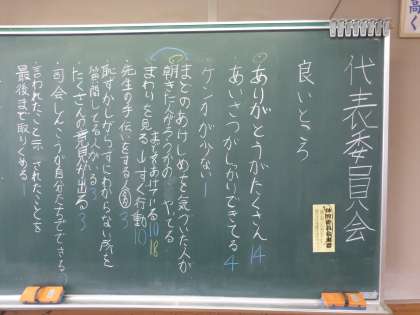 代表委員会
良いところ
・ありがとうがたくさん 14
・あいさつがしっかりできてる 4
・ケンカが少ない 1
・まどのあけしめを気づいた人が
まどをあけている 10
・朝きたんがランクの やってる 18
・まわりを見る すぐ行動 10
・先生の手伝いをする 3
・恥ずかしがらずにわからない所を
質問してる人がいる 3
・たくさんの意見が出る 3
・司会しんこうが自分たちでできる 2
・言われたこと 示されたことを
最後まで取りくめる 1
高く